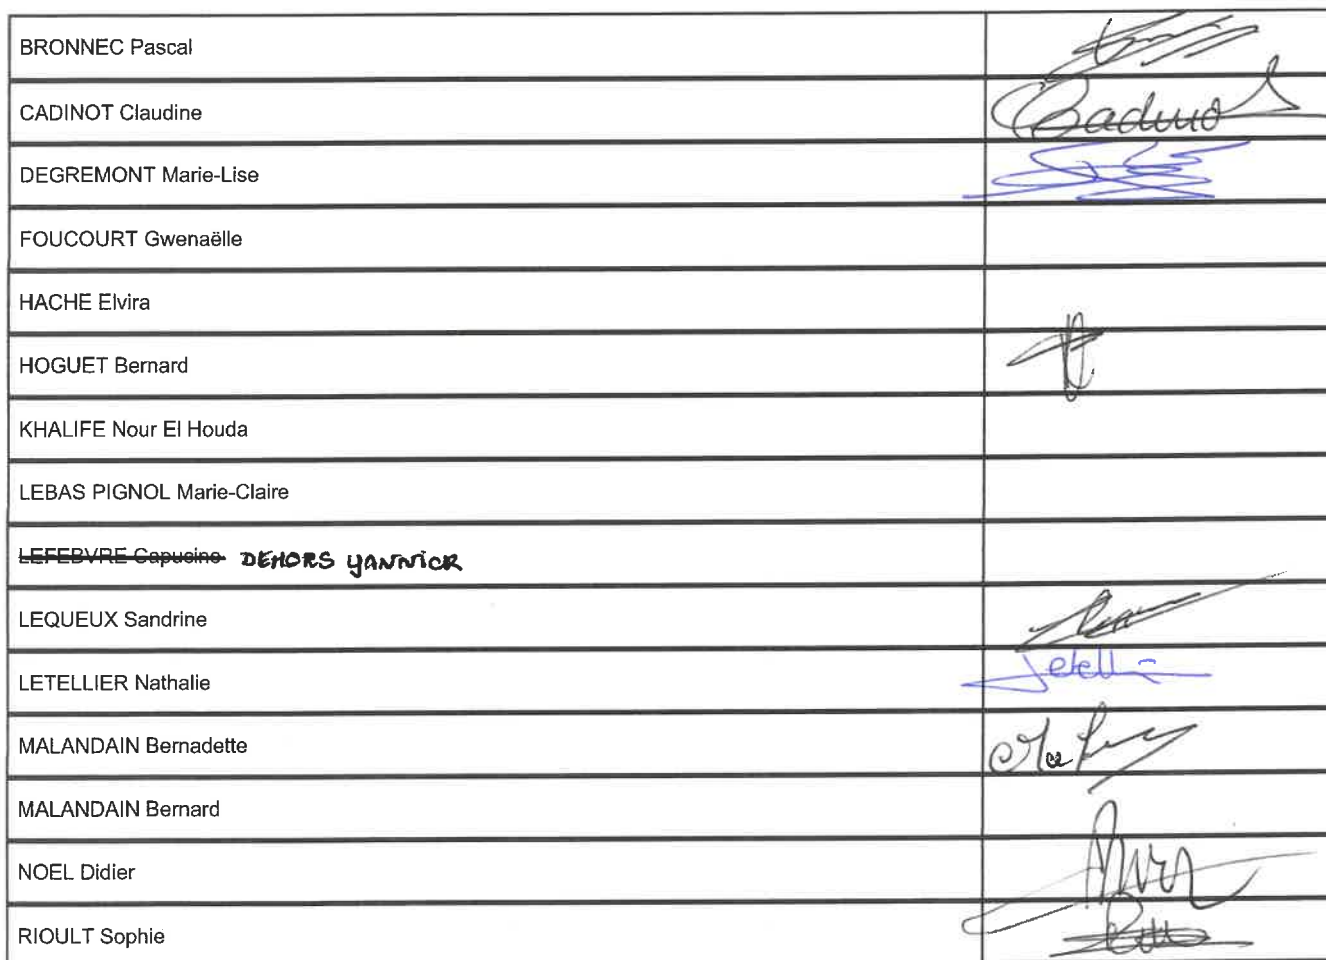 BRONNEC Pascal
CADINOT Claudine Cadinot
DEGREMONT Marie-Lise
FOUCOURT Gwenaëlle
HACHE Elvira
HOGUET Bernard
KHALIFE Nour El Houda
LEBAS PIGNOL Marie-Claire
LEFEBVRE Capucine DEHORS YANNICK
LEQUEUX Sandrine
LETELLIER Nathalie
MALANDAIN Bernadette
MALANDAIN Bernard
NOEL Didier
RIOULT Sophie